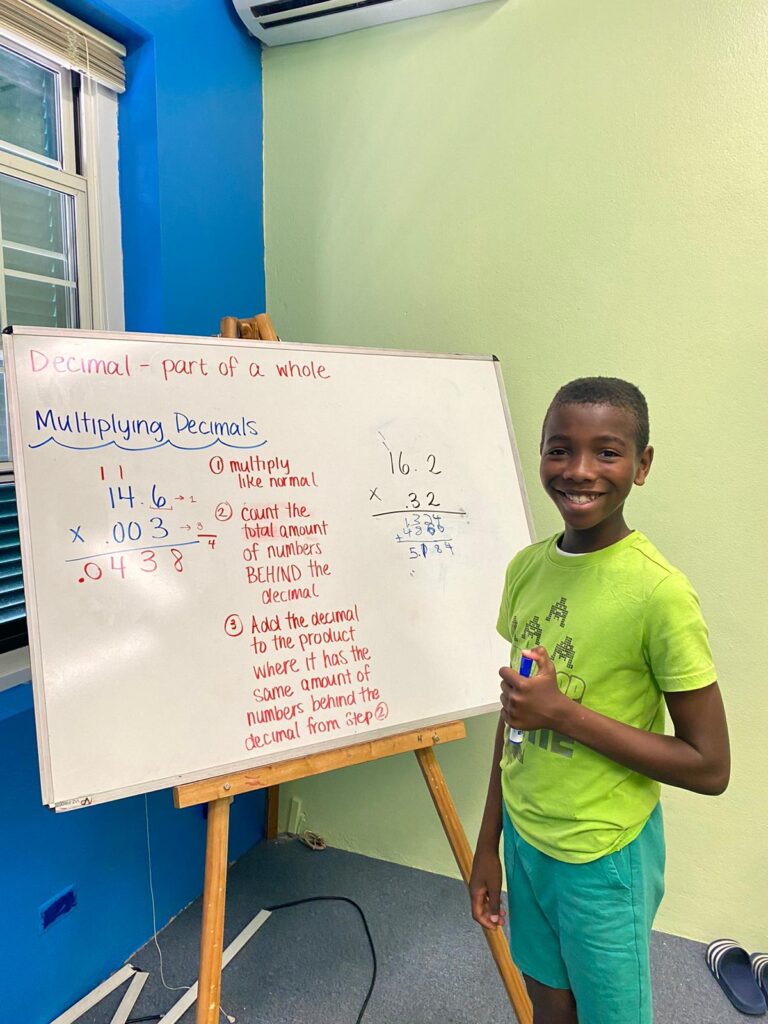 Decimal - part of a whole
Multiplying Decimals
1 1
14.6 → 1
x .003 → 3
4
.0438
① multiply
like normal
② count the
total amount
of numbers
BEHIND the
decimal
③ Add the decimal
to the product
where it has the
same amount of
numbers behind the
decimal from Step ②
16.2
x .32
1324
+
5.184